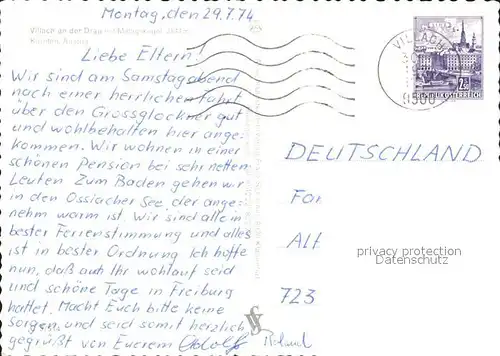 Montag, den 29.7.74
Villach an der Drau
Kärnten, Austria
Liebe Eltern!
Wir sind am Samstagabend
nach einer herrlichen Fahrt
über den Grossglockner gut
und wohlbehalten hier ange-
kommen. Wir wohnen in einer
schönen Pension bei sehr netten
Leuten Zum Baden gehen wir
in den Ossiacher See, der ange-
nehm warm ist. Wir sind alle in
bester Ferienstimmung und alles
ist in bester Ordnung Ich hoffe
nun, daß auch Ihr wohlauf seid
und schöne Tage in Freiburg
hattet. Macht Euch bitte keine
Sorgen und seid somit herzlich
gegrüßt von Eurem Adolf Roland
VILLACH
9500
REPUBLIK ÖSTERREICH
DEUTSCHLAND
For
Alt
723
privacy protection
Datenschutz